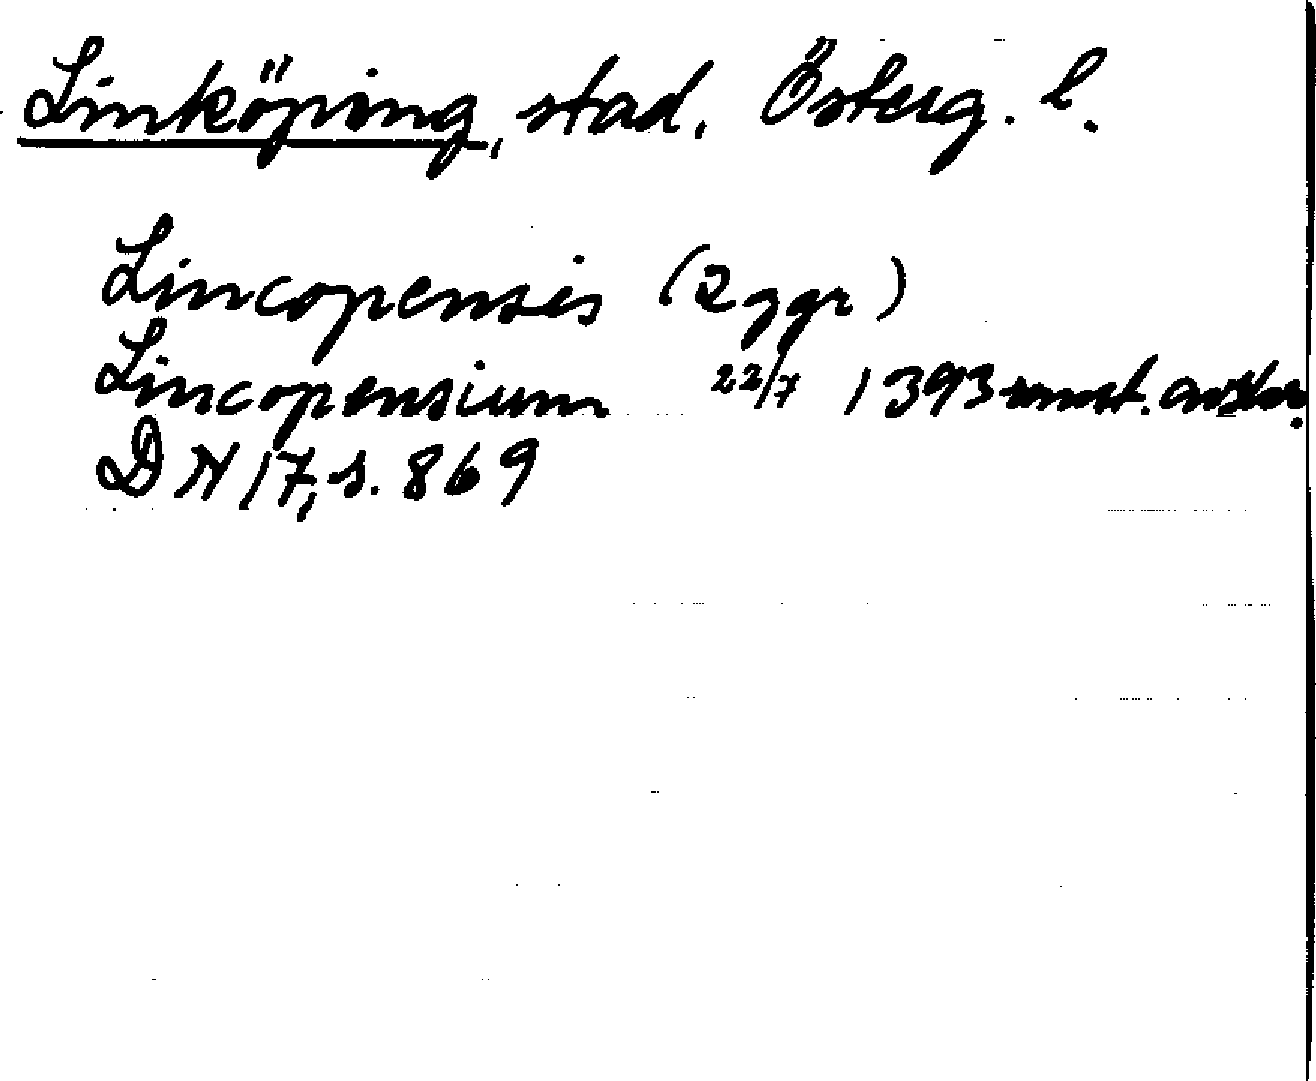 Linköping, stad. Österg. l.
Lincopensis (2 ggr)
Lincopensium 22/7 1393 samt. avskr.
DN 17, s. 869